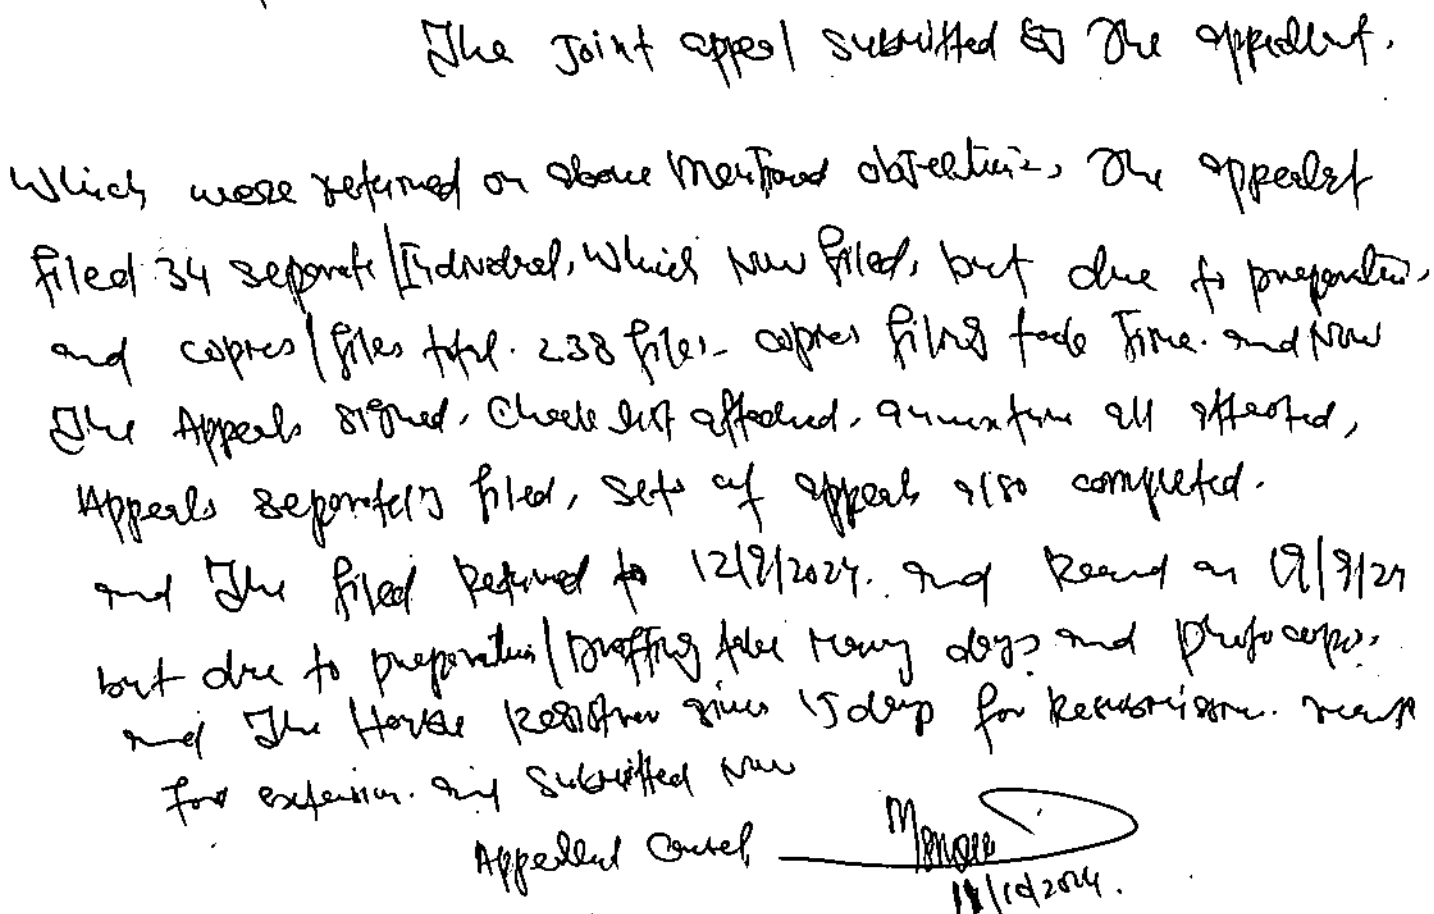 The Joint appeal submitted by The appellant.
Which were returned on above Mentioned objections, The appellant
filed 34 separate/Individual, which Now filed, but due to preparation,
and copies/files total. 238 files- copies filing take Time. and Now
The Appeals signed, Check list attached, annexture all attested,
Appeals separately filed, sets of appeals also completed.
and The filed Returned to 12/9/2024. and Received on 19/9/24
but due to preparation/Drafting take many days and photo copies
and The Honble Registrar gives 15 days for Resubmission.
for extension. and submitted Now
Appellant Counsel
11/10/2024.